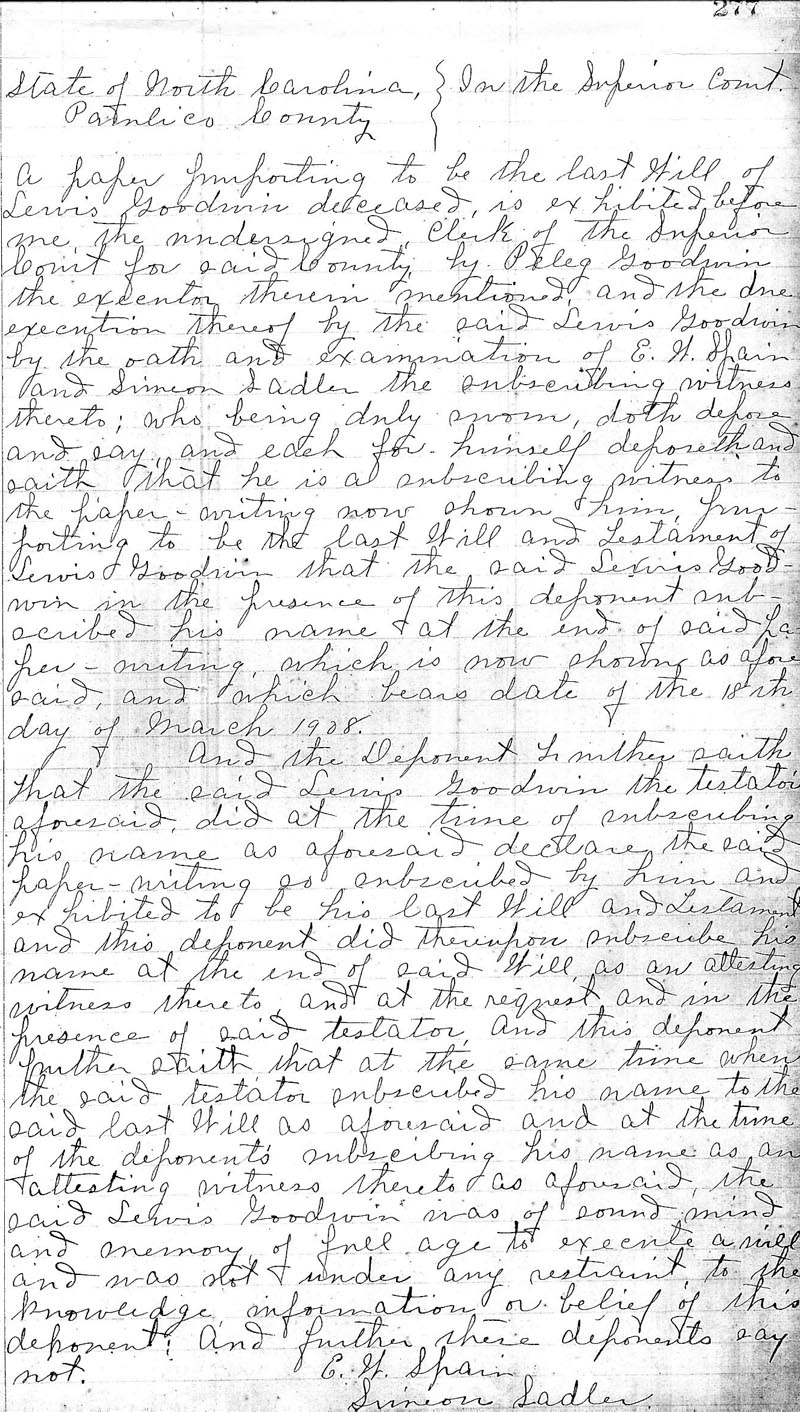 277
State of North Carolina, } In the Superior Court.
Pamlico County
A paper purporting to be the last Will of
Lewis Goodwin deceased, is exhibited before
me, the undersigned, Clerk of the Superior
Court for said County, by Peleg Goodwin
the executor therein mentioned, and the due
execution thereof by the said Lewis Goodwin
by the oath and examination of E. W. Spain
and Simeon Sadler the subscribing witness
thereto; who being duly sworn, doth depose
and say, and each for himself deposeth and
saith that he is a subscribing witness to
the paper-writing now shown him, pur-
porting to be the last Will and Testament of
Lewis Goodwin that the said Lewis Good-
win in the presence of this deponent sub-
scribed his name at the end of said pa
per-writing, which is now shown as afore
said, and which bears date of the 18th
day of March 1908.
And the Deponent Further saith
that the said Lewis Goodwin the testator
aforesaid, did at the time of subscribing
his name as aforesaid declare the said
paper-writing so subscribed by him and
exhibited to be his last Will and Testament
and this deponent did thereupon subscribe his
name at the end of said Will, as an attesting
witness thereto, and at the request and in the
presence of said testator, And this deponent
further saith that at the same time when
the said testator subscribed his name to the
said last Will as aforesaid and at the time
of the deponent's subscibing his name as an
attesting witness thereto as aforesaid, the
said Lewis Goodwin was of sound mind
and memory, of full age to execute a will
and was not under any restraint, to the
knowledge, information or belief of this
deponent; And further these deponents say
not. E. W. Spain
Simeon Sadler.